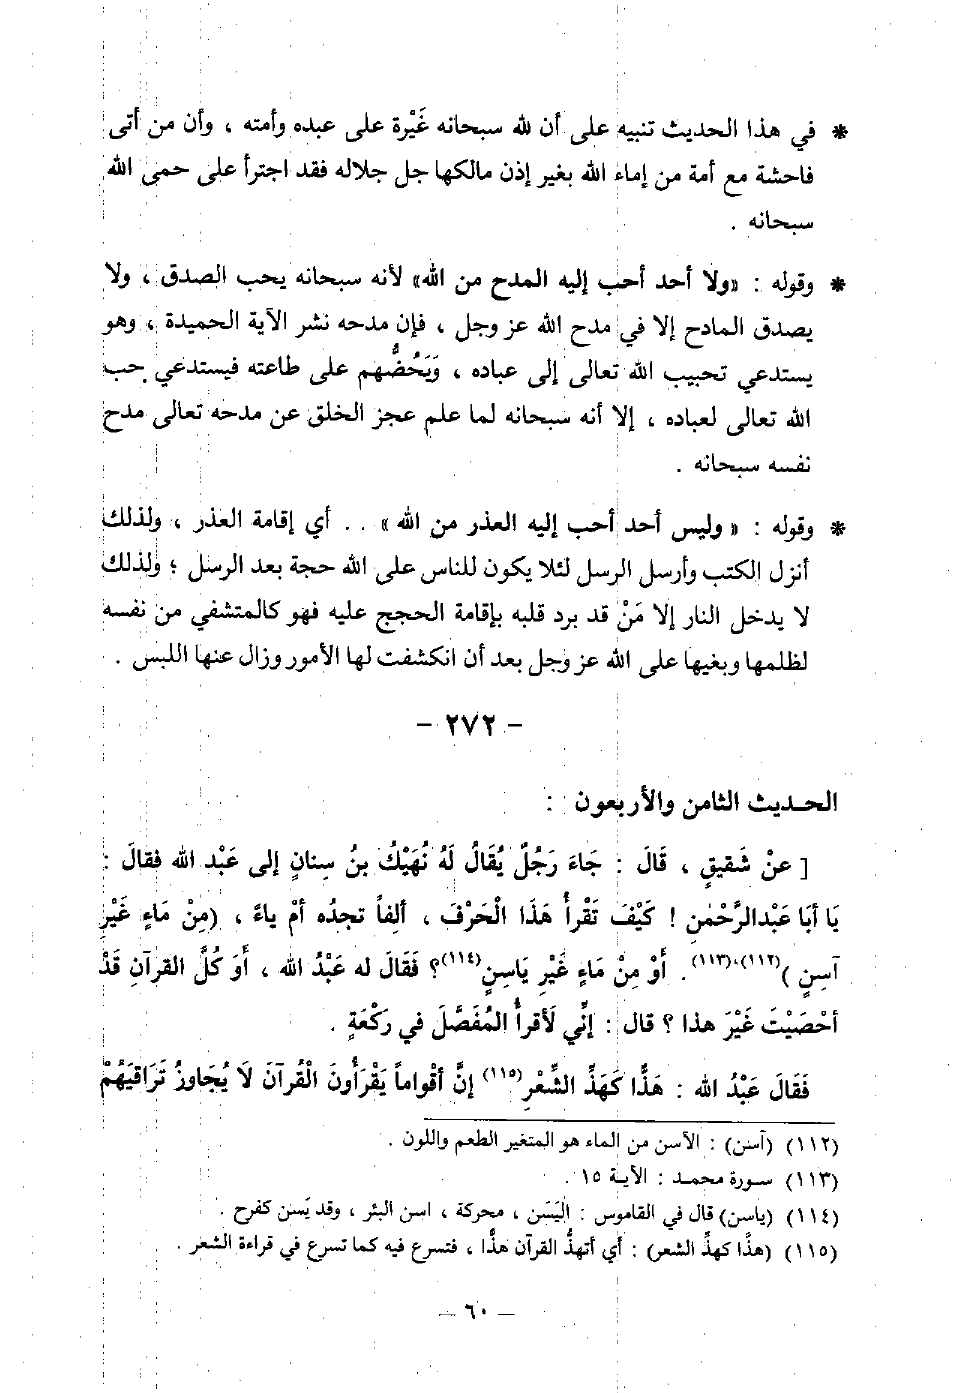 * في هذا الحديث تنبيه على أن لله سبحانه غَيْرة على عبده وأمته ، وأن من أتى
فاحشة مع أمة من إماء الله بغير إذن مالكها جل جلاله فقد اجترأ على حمى الله
سبحانه .
* وقوله : «ولا أحد أحب إليه المدح من الله» لأنه سبحانه يحب الصدق ، ولا
يصدق المادح إلا في مدح الله عز وجل ، فإن مدحه نشر الآية الحميدة ، وهو
يستدعي تحبيب الله تعالى إلى عباده ، وَيَحُضُّهم على طاعته فيستدعي حب
الله تعالى لعباده ، إلا أنه سبحانه لما علم عجز الخلق عن مدحه تعالى مدح
نفسه سبحانه .
* وقوله : « وليس أحد أحب إليه العذر من الله » . . أي إقامة العذر ، ولذلك
أنزل الكتب وأرسل الرسل لئلا يكون للناس على الله حجة بعد الرسل ؛ ولذلك
لا يدخل النار إلا مَنْ قد برد قلبه بإقامة الحجج عليه فهو كالمتشفي من نفسه
لظلمها وبغيها على الله عز وجل بعد أن انكشفت لها الأمور وزال عنها اللبس .
- ٢٧٢ -
الحديث الثامن والأربعون :
[ عنْ شَقيقٍ ، قَالَ : جَاءَ رَجُلٌ يُقَالُ لَهُ نُهَيْكُ بنُ سِنانٍ إلى عَبْد الله فقالَ :
يَا أبَا عَبْدالرَّحْمٰنِ ! كَيْفَ تَقْرأُ هَذَا الْحَرْفَ ، ألِفاً تجدُه أمْ ياءً ، (مِنْ مَاءٍ غَيْرِ
آسِنٍ )(١١٢)،(١١٣) . أَوْ مِنْ مَاءٍ غَيْرِ يَاسِنٍ(١١٤)؟ فَقَالَ له عَبْدُ الله ، أَوَ كُلَّ القرآنِ قَدْ
أحْصَيْتَ غَيْرَ هذا ؟ قال : إنِّي لَأقرأُ المُفَصَّلَ في رَكْعَةٍ .
فَقَالَ عَبْدُ الله : هَذًّا كَهَذِّ الشِّعْرِ(١١٥) إنَّ أقْواماً يَقْرَأُونَ الْقُرآنَ لَا يُجَاوزُ تَرَاقِيَهُمْ
(١١٢) (آسن) : الآسن من الماء هو المتغير الطعم واللون .
(١١٣) سورة محمد : الآية ١٥ .
(١١٤) (ياسن) قال في القاموس : اليَسَن ، محركة ، اسن البئر ، وقد يَسن كفرح .
(١١٥) (هذًّا كهذِّ الشعر) : أي أتهذُّ القرآن هذًّا ، فتسرع فيه كما تسرع في قراءة الشعر .
— ٦٠ —